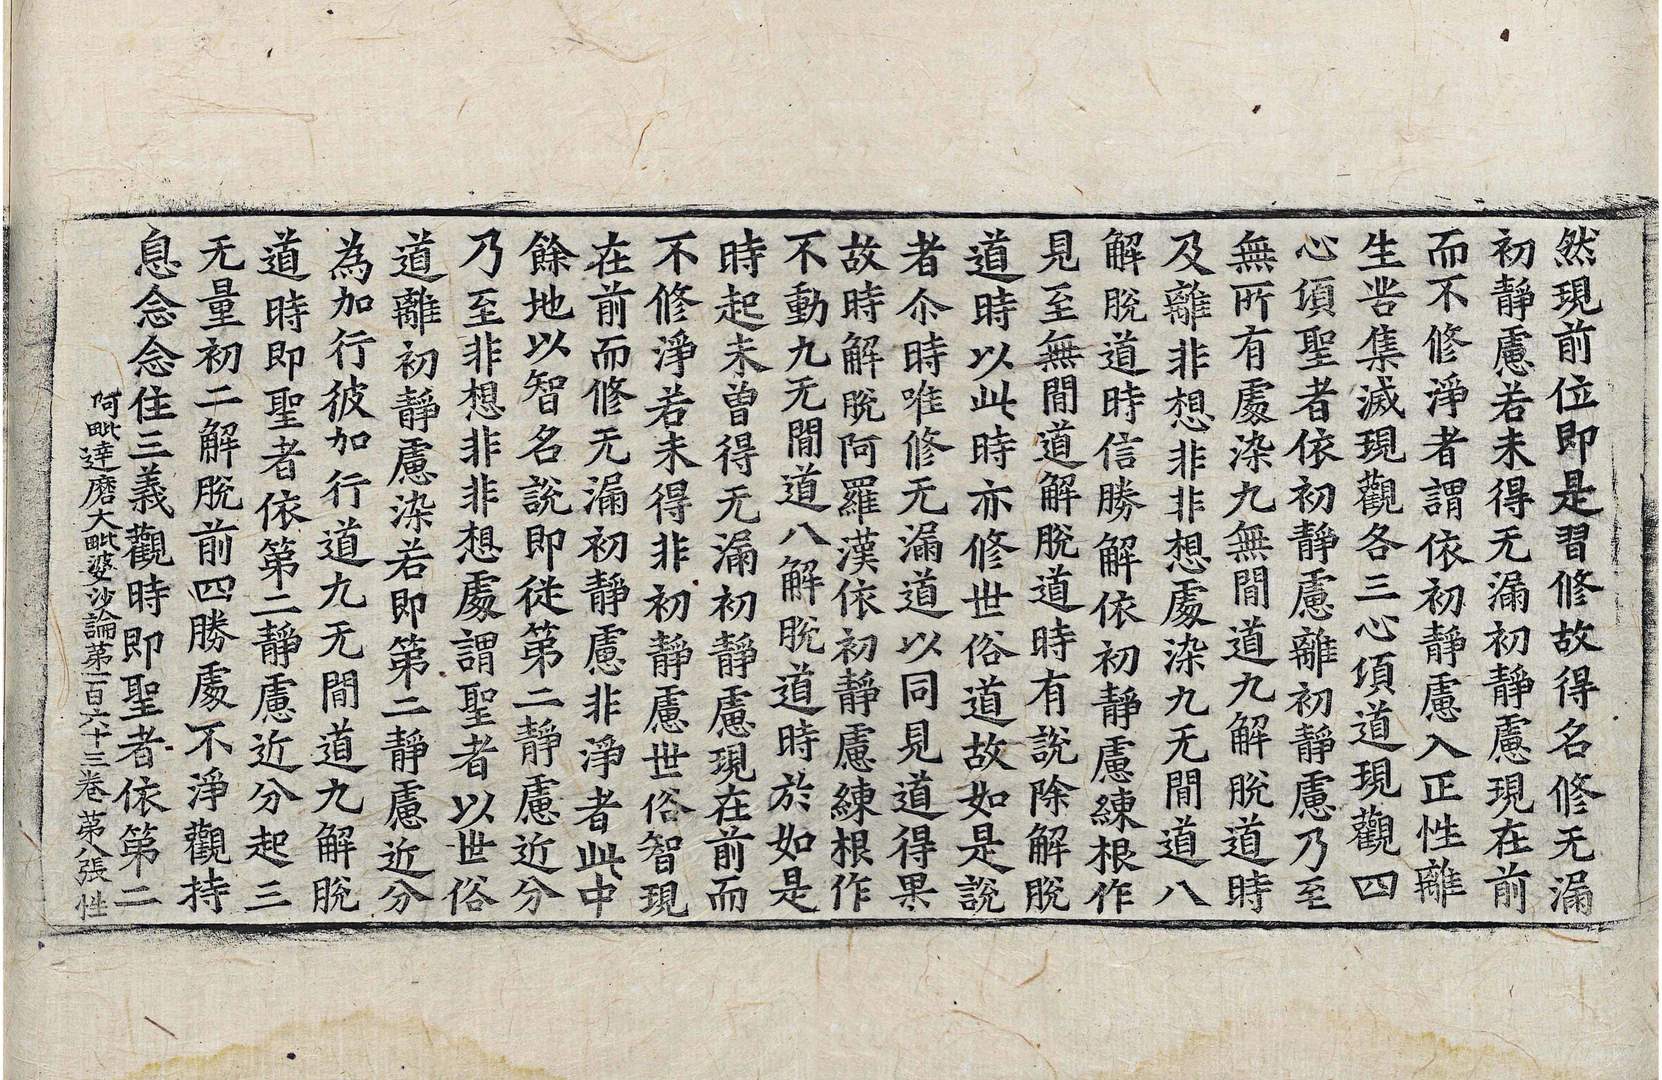 然現前位即是習修故得名修无漏
初靜慮若未得无漏初靜慮現在前
而不修淨者謂依初靜慮入正性離
生苦集滅現觀各三心須道現觀四
心須聖者依初靜慮離初靜慮乃至
無所有處染九無間道九解脫道時
及離非想非非想處染九无間道八
解脫道時信勝解依初靜慮練根作
見至無間道解脫道時有說除解脫
道時以此時亦修世俗道故如是說
者尒時唯修无漏道以同見道得果
故時解脫阿羅漢依初靜慮練根作
不動九无間道八解脫道時於如是
時起未曾得无漏初靜慮現在前而
不修淨若未得非初靜慮世俗智現
在前而修无漏初靜慮非淨者此中
餘地以智名說即從第二靜慮近分
乃至非想非非想處謂聖者以世俗
道離初靜慮染若即第二靜慮近分
為加行彼加行道九无間道九解脫
道時即聖者依第二靜慮近分起三
无量初二解脫前四勝處不淨觀持
息念念住三義觀時即聖者依第二
阿毗達磨大毗婆沙論第一百六十三卷 第八張 性